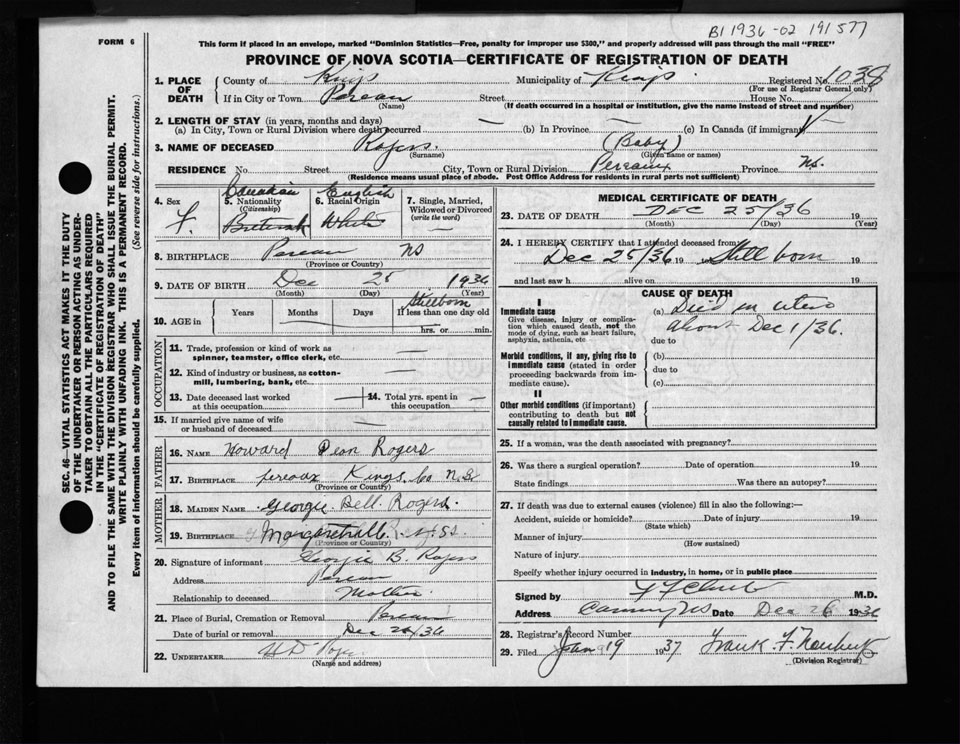 B1 1936-02 191577
FORM 6
This form if placed in an envelope, marked "Dominion Statistics—Free, penalty for improper use $300," and properly addressed will pass through the mail "FREE"
PROVINCE OF NOVA SCOTIA—CERTIFICATE OF REGISTRATION OF DEATH
1. PLACE OF DEATH County of Kings Municipality of Kings Registered No. 1038
(For use of Registrar General only)
If in City or Town Pereau Street House No.
(Name) (If death occurred in a hospital or institution, give the name instead of street and number)
2. LENGTH OF STAY (in years, months and days)
(a) In City, Town or Rural Division where death occurred — (b) In Province — (c) In Canada (if immigrant) —
3. NAME OF DECEASED Rogers. (Baby)
(Surname) (Given name or names)
RESIDENCE No. Street City, Town or Rural Division Pereaux Province N.S.
(Residence means usual place of abode. Post Office Address for residents in rural parts not sufficient)
4. Sex F.
5. Nationality (Citizenship) Canadian
6. Racial Origin English White
7. Single, Married, Widowed or Divorced (write the word) —
8. BIRTHPLACE Pereau NS
(Province or Country)
9. DATE OF BIRTH Dec 25 1936
(Month) (Day) (Year)
10. AGE in Years Months Days Stillborn If less than one day old
hrs. or min.
OCCUPATION
11. Trade, profession or kind of work as spinner, teamster, office clerk, etc. —
12. Kind of industry or business, as cotton-mill, lumbering, bank, etc. —
13. Date deceased last worked at this occupation —
14. Total yrs. spent in this occupation —
15. If married give name of wife or husband of deceased —
FATHER
16. NAME Howard Dean Rogers
17. BIRTHPLACE pereaux Kings Co N.S.
(Province or Country)
MOTHER
18. MAIDEN NAME Georgie Bell Rogers.
19. BIRTHPLACE
(Province or Country)
20. Signature of informant Georgie B. Rogers
Address Pereau
Relationship to deceased Mother
21. Place of Burial, Cremation or Removal Pereau
Date of burial or removal Dec 26/36
22. UNDERTAKER H D
(Name and address)
MEDICAL CERTIFICATE OF DEATH
23. DATE OF DEATH DEC 25/36 19
(Month) (Day) (Year)
24. I HEREBY CERTIFY that I attended deceased from
Dec 25/36 19 Still born 19
and last saw h alive on 19
CAUSE OF DEATH
I
Immediate cause
Give disease, injury or complication which caused death, not the mode of dying, such as heart failure, asphyxia, asthenia, etc.
(a) Died in utero
about Dec 1/36.
due to
Morbid conditions, if any, giving rise to immediate cause (stated in order proceeding backwards from immediate cause).
(b)
due to
(c)
II
Other morbid conditions (if important) contributing to death but not causally related to immediate cause.
25. If a woman, was the death associated with pregnancy?
26. Was there a surgical operation? Date of operation 19
State findings Was there an autopsy?
27. If death was due to external causes (violence) fill in also the following:—
Accident, suicide or homicide? Date of injury 19
(State which)
Manner of injury
(How sustained)
Nature of injury
Specify whether injury occurred in industry, in home, or in public place
Signed by M.D.
Address Canning NS Date Dec 26 1936
28. Registrar's Record Number
29. Filed Jan 19 1937 Frank F.
(Division Registrar)
SEC. 46—VITAL STATISTICS ACT MAKES IT THE DUTY
OF THE UNDERTAKER OR PERSON ACTING AS UNDER-
TAKER TO OBTAIN ALL THE PARTICULARS REQUIRED
IN THE "CERTIFICATE OF REGISTRATION OF DEATH"
AND TO FILE THE SAME WITH THE DIVISION REGISTRAR WHO SHALL ISSUE THE BURIAL PERMIT.
WRITE PLAINLY WITH UNFADING INK. THIS IS A PERMANENT RECORD.
Every item of information should be carefully supplied. (See reverse side for instructions.)